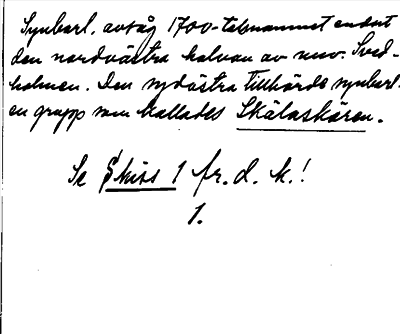 Synbarl. avsåg 1700-talsnamnet endast
den nordvästra halvan av nuv. Sved-
holmen. Den sydöstra tillhörde synbarl.
en grupp som kallades Skålaskären.
Se Skiss 1 fr. d. k.!
1.